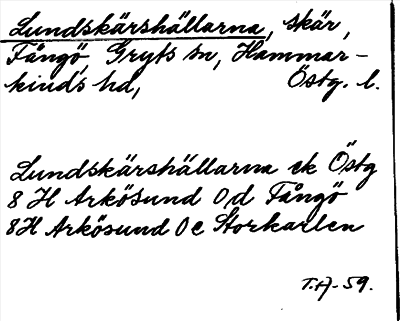 Lundskärshällarna, skär,
Fångö, Gryts sn, Hammar-
kinds hd, Östg. l.
Lundskärshällarna ek Östg
8 H Arkösund 0 d Fångö
8H Arkösund 0 e Storkarlen
T.A - 59.